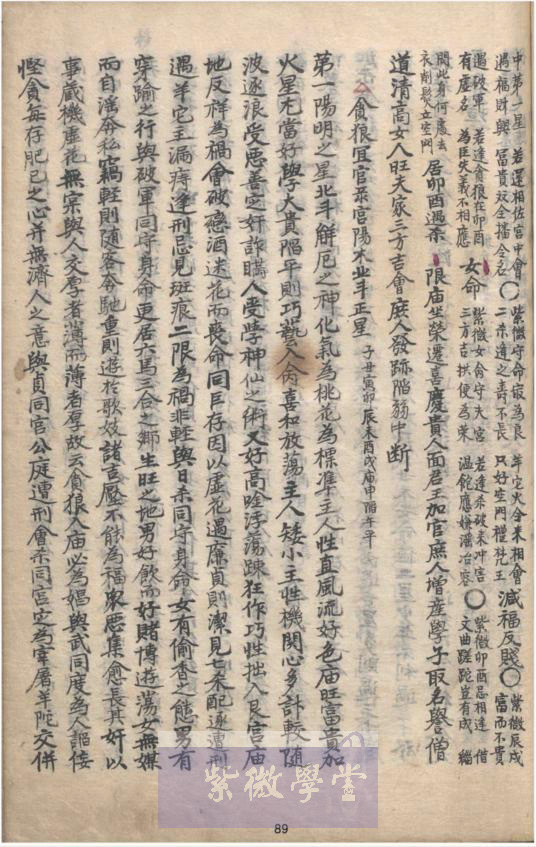 中第一星 若還相佐宮中會 ○ 紫微守命最為良 羊它火合來相會 減福反賤 ○ 紫微辰戌
遇福財興 富貴双全播令名 二杀逢之寿不長 只好空門禮梵王 富而不貴
有虛名 為臣失義不相應 女命 紫微女命守夫宮 若逢杀破来冲害 ○ 紫微卯酉忌相逢 借
遇破軍 若逢貪狼在卯酉 三方吉拱便為荣 温飽應嫌濫冶容 文曲蹉跎豈有成 緇
問此身何處去
衣削髮立空門 居卯酉遇杀 限庙坐榮遷喜慶貴人面君王加官庶人增産學子取名譽僧
道清高女人旺夫家三方吉會庶人發跡陷弱中断
貪狼宜官录宮陽木北斗正星 子丑寅卯辰未酉戌庙申陷午平
第一陽明之星北斗觧厄之神化氣為桃花為標準主人性直風流好色庙旺富貴加
火星尤當好學大貴陷平則巧藝入丙喜和放蕩主人矮小主性机關心多計較随
波逐浪受惡善定奸詐瞞人受學神仙之術又好高啥浮蕩踈狂作巧性拙入艮宮庙
地反祥為禍會破戀酒迷花而喪命同巨存因以虛花遇廉貞則潔見七杀配逐遭刑
遇羊它主漏痔逢刑忌見斑痕二限為禍非輕與日杀同守身命女有偷香之態男有
穿踰之行與破軍同守身命更居六馬三合之鄉生旺之地男好飲而好賭博遊蕩女無媒
而自淫奔私竊輕則随客奔馳重則遊於歌妓諸吉壓不能為福眾惡集愈長其奸以
事感機虛花無寔與人交厚者薄而薄者厚故云貪狼入庙必為娼與武同度為人謳佞
慳貪每存肥己之心并無濟人之意與貞同官公庭遭刑會杀同宮定為宰屠羊陀交併
紫微學堂
89